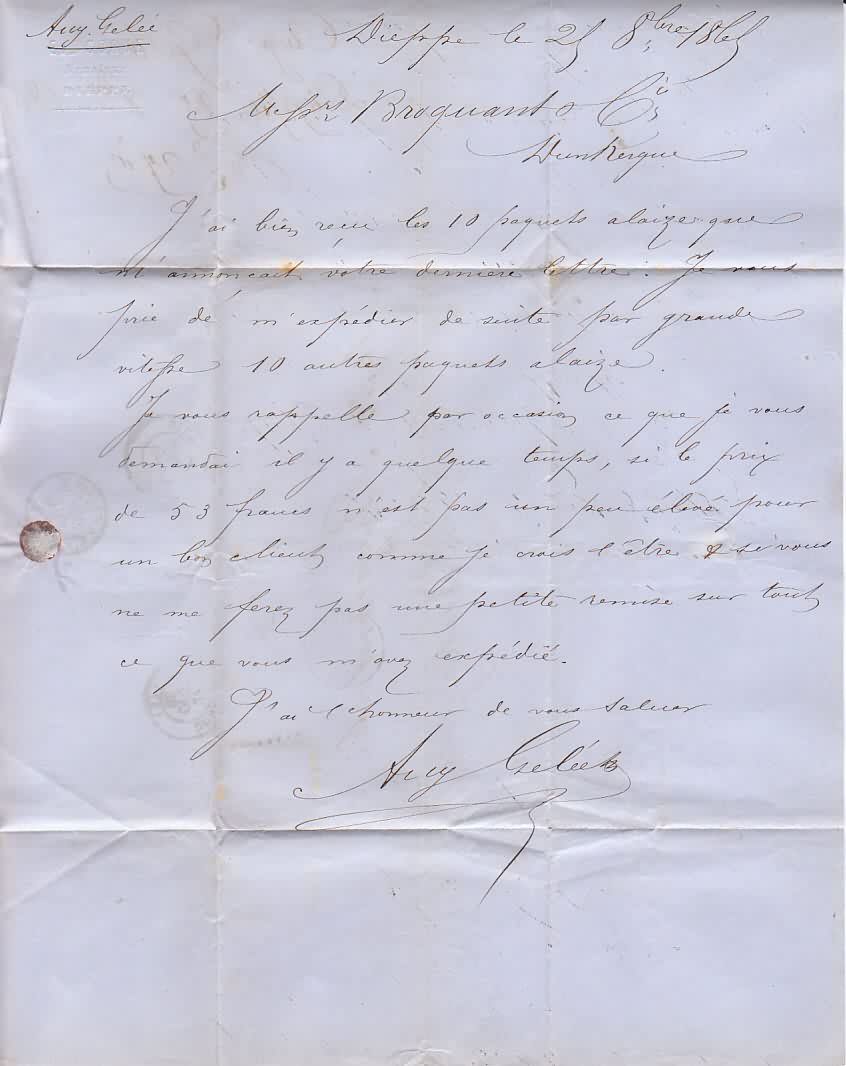 Aug. Gelée
Dieppe le 25 8bre 1865
Messrs Broquant & Cie
Dunkerque
J'ai bien recu les 10 paquets alaize que
m'annoncait votre dernière lettre. Je vous
prie de m'expédier de suite par grande
vitesse 10 autres paquets alaize.
Je vous rappelle par occasion ce que je vous
demandai il y a quelque temps, si le prix
de 53 francs n'est pas un peu élevé pour
un bon client comme je crois l'être & si vous
ne me ferez pas une petite remise sur tout
ce que vous m'avez expédié.
J'ai l'honneur de vous saluer
Aug Gelée